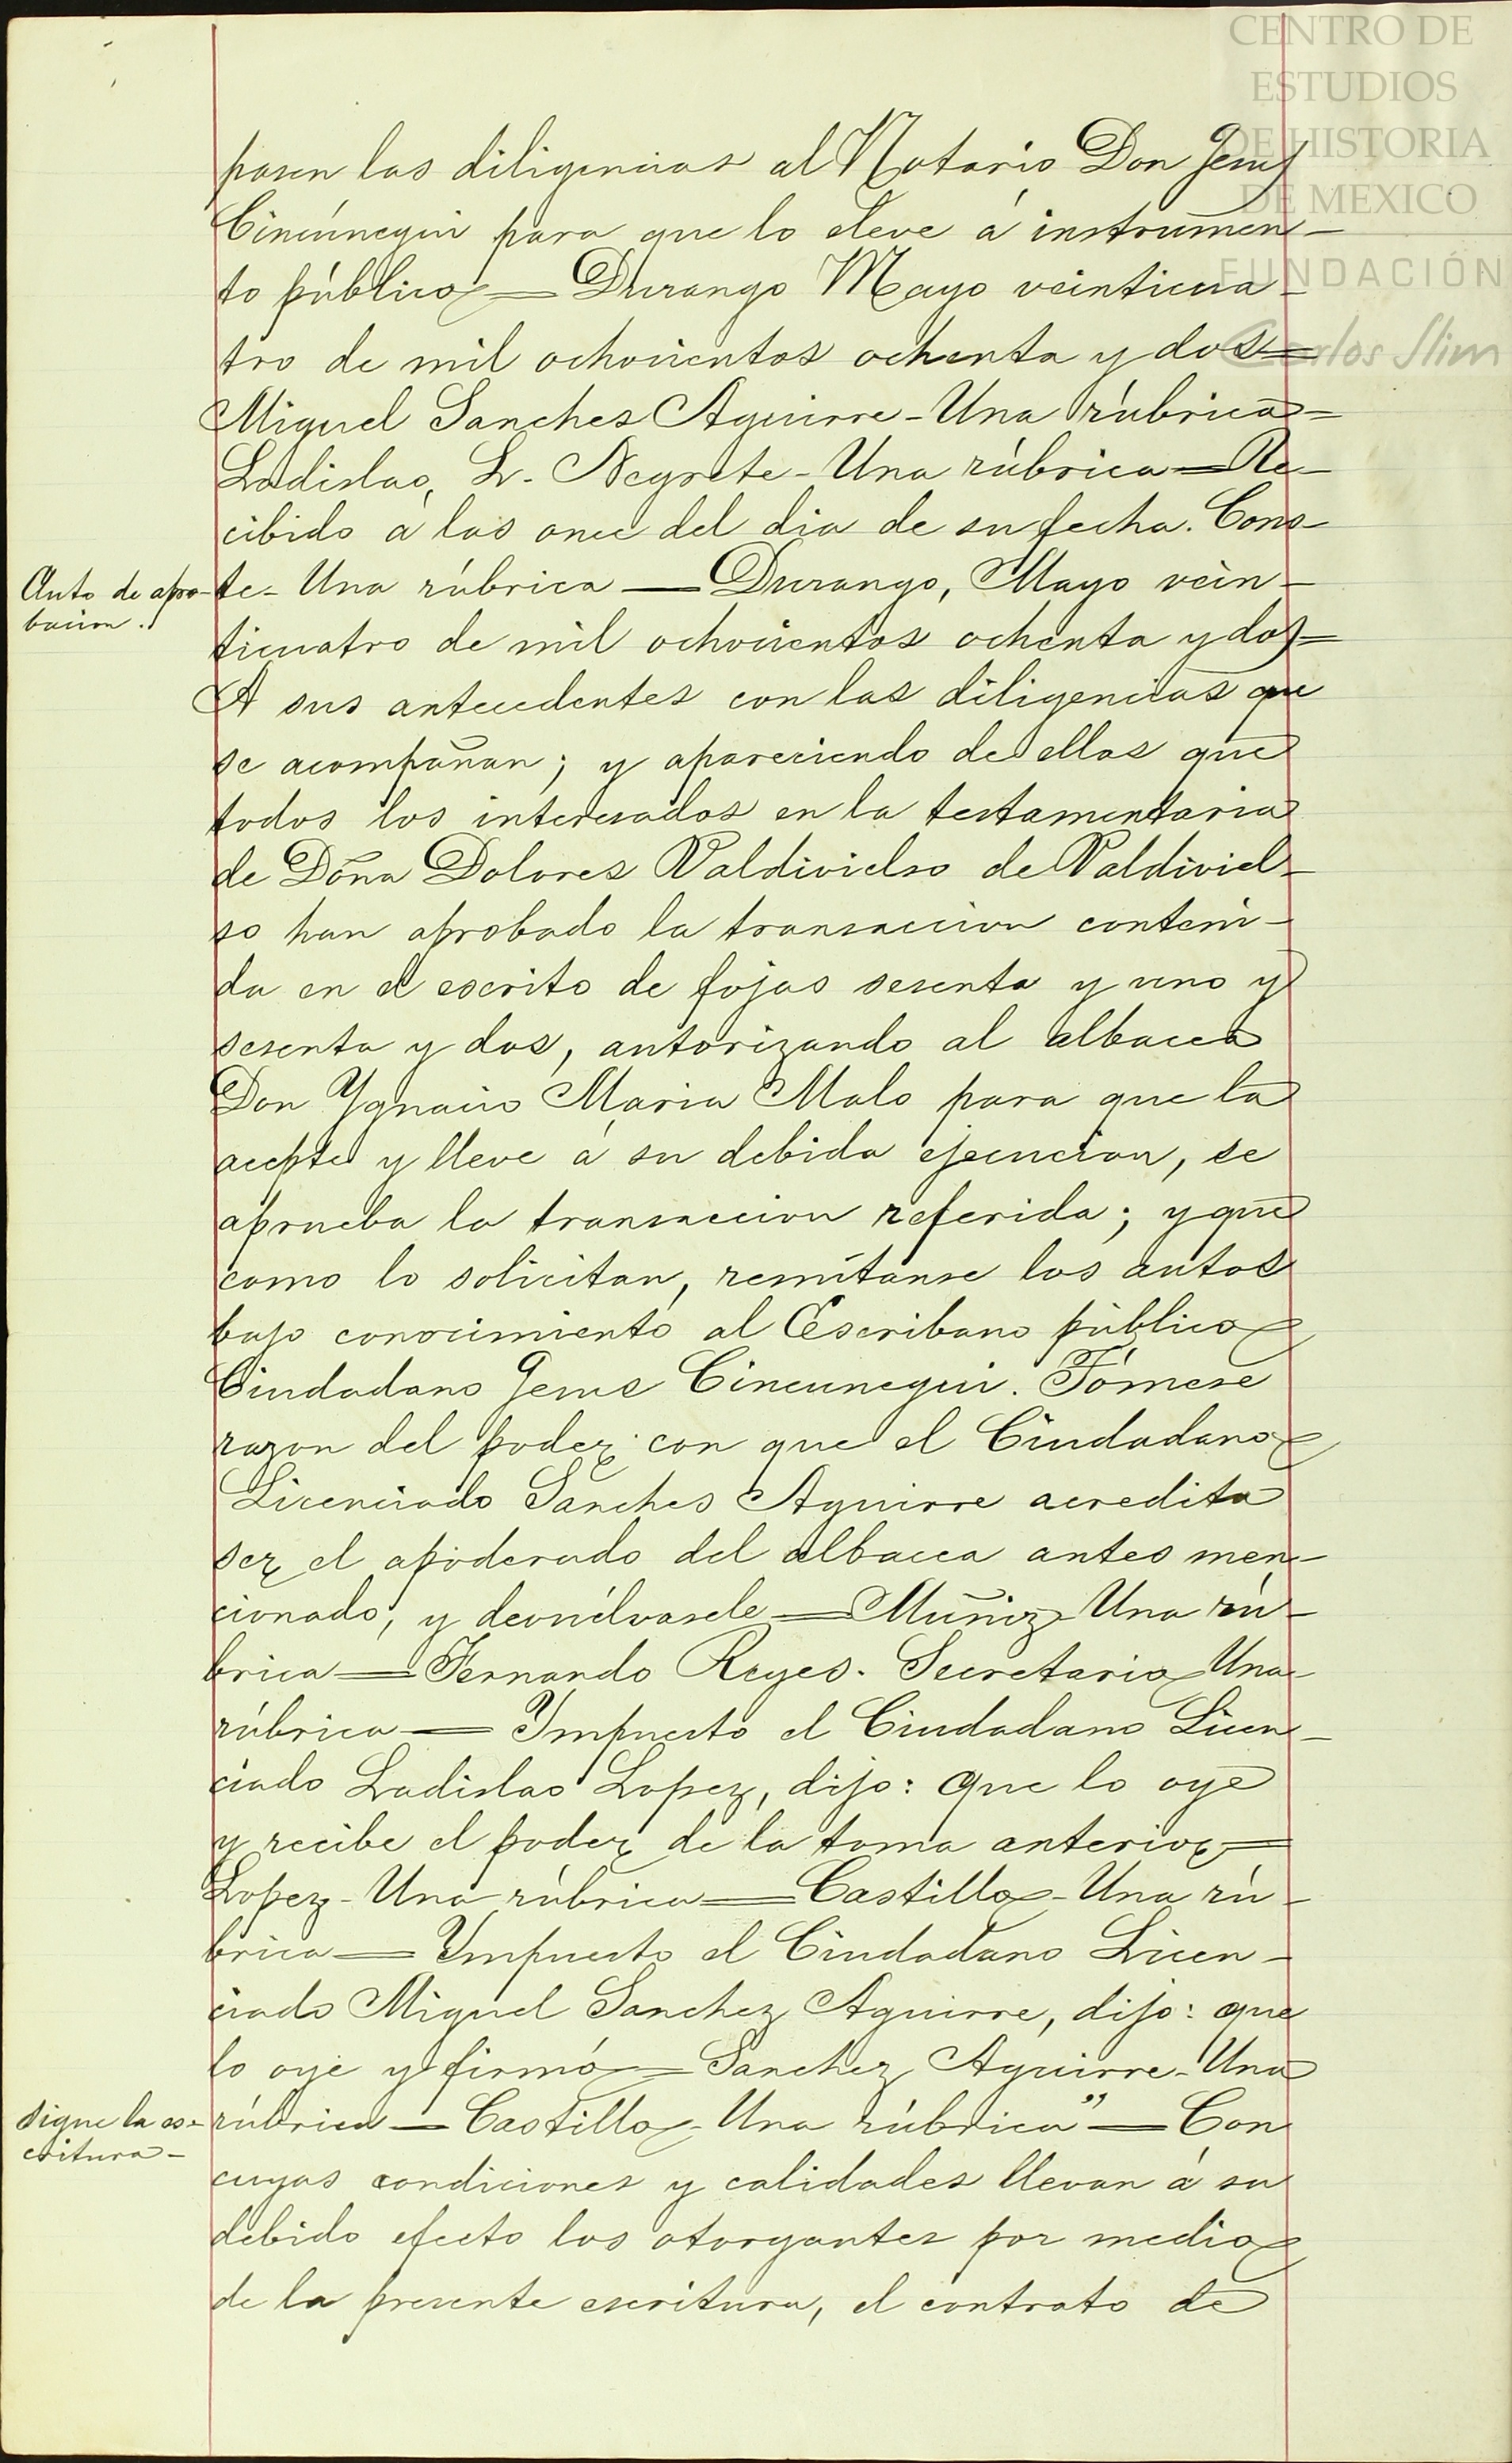 CENTRO DE
ESTUDIOS
DE HISTORIA
DE MEXICO
FUNDACIÓN
Carlos Slim
pasen las diligencias al Notario Don Jesus
Cincúnegui para que lo eleve á instrumen-
to público= Durango Mayo veinticua-
tro de mil ochocientos ochenta y dos=
Miguel Sanches Aguirre-Una rúbrica=
Ladislao, L. Negrete-Una rúbrica=Re-
cibido á las once del dia de su fecha. Cons-
Auto de apro-
bacion.
te- Una rúbrica — Durango, Mayo vein-
ticuatro de mil ochocientos ochenta y dos=
A sus antecedentes con las diligencias que
se acompañan; y apareciendo de ellas que
todos los interesados en la testamentaria
de Doña Dolores Valdivielso de Valdiviel-
so han aprobado la transaccion conteni-
da en el escrito de fojas sesenta y uno y
sesenta y dos, autorizando al albacea
Don Ygnacio Maria Malo para que la
acepte y lleve á su debida ejecucion, se
aprueba la transaccion referida; y que
como lo solicitan, remítanse los autos
bajo conocimiento al Escribano público
Ciudadano Jesus Cincunegui. Tómese
razon del poder con que el Ciudadano
Licenciado Sanches Aguirre acredita
ser el apoderado del albacea antes men-
cionado, y devuélvasele=Muñiz-Una rú-
brica=Fernando Reyes. Secretario-Una
rúbrica= Ympuesto el Ciudadano Licen-
ciado Ladislao Lopez, dijo: que lo oye
y recibe el poder de la toma anterior=
Lopez-Una rúbrica=Castillo-Una rú-
brica= Ympuesto el Ciudadano Licen-
ciado Miguel Sanchez Aguirre, dijo: que
lo oye y firmó=Sanchez Aguirre-Una
Sigue la es-
critura-
rúbrica=Castillo-Una rúbrica"=Con
cuyas condiciones y calidades llevan á su
debido efecto los otorgantes por medio
de la presente escritura, el contrato de